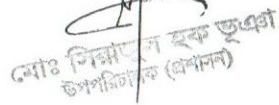 মোঃ গিয়াস হক ভূঞা
উপপরিচালক (প্রশাসন)